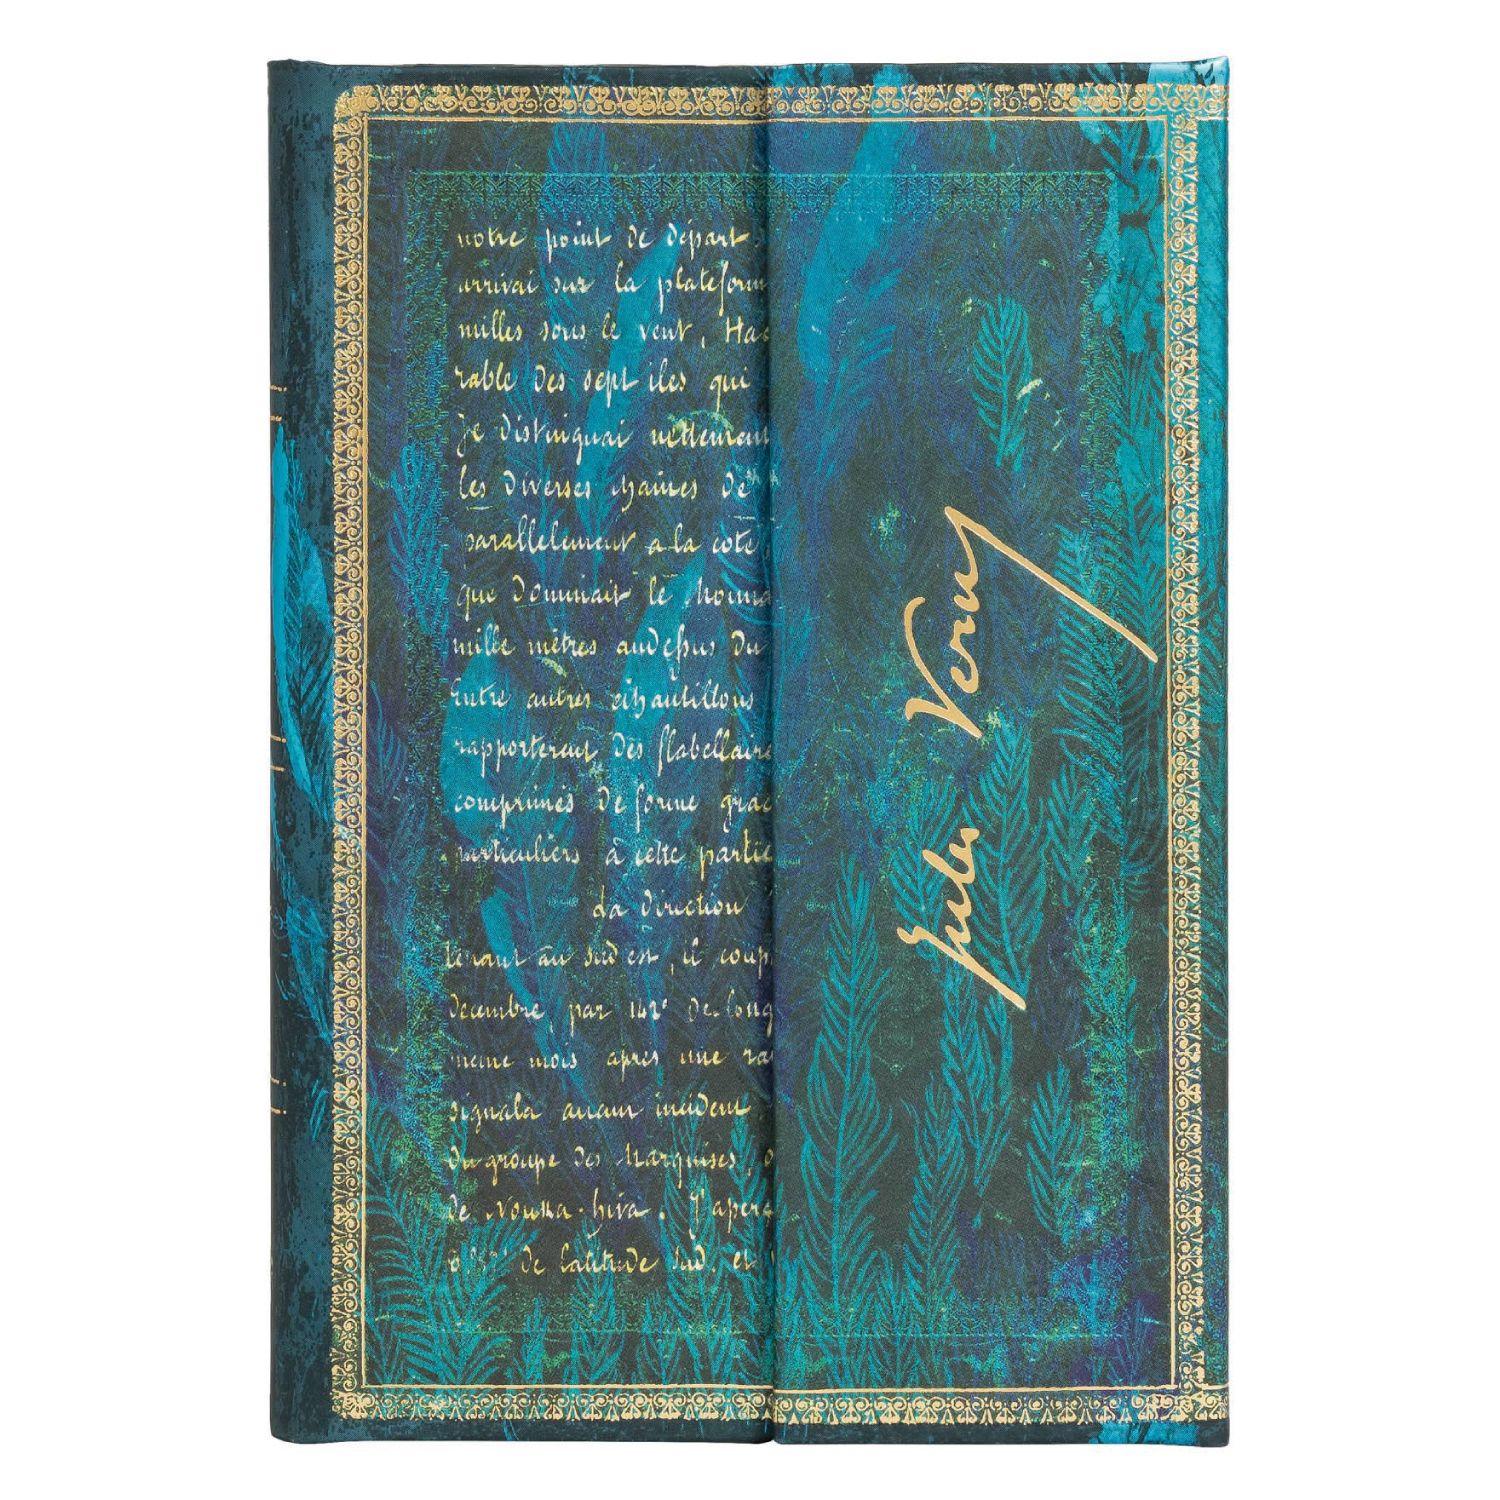 notre point de départ.
arrivai sur la plateform
milles sous le vent, Ha
rable des sept iles qui
je distinguai nettement
les diverses chaines de
parallelement a la cote
que dominait le Mouna
mille mètres audessus du
Entre autres échantillons
rapporterent des flabellaire
comprimés de forme grac
particuliers à cette partie
La direction
tenant au sud est, il coup
décembre, par 142° de long
meme mois apres une ra
signala aucun incident
du groupe des Marquises, o
de Nouka-hiva. J'aper
8°57' de latitude sud. et
Jules Verne